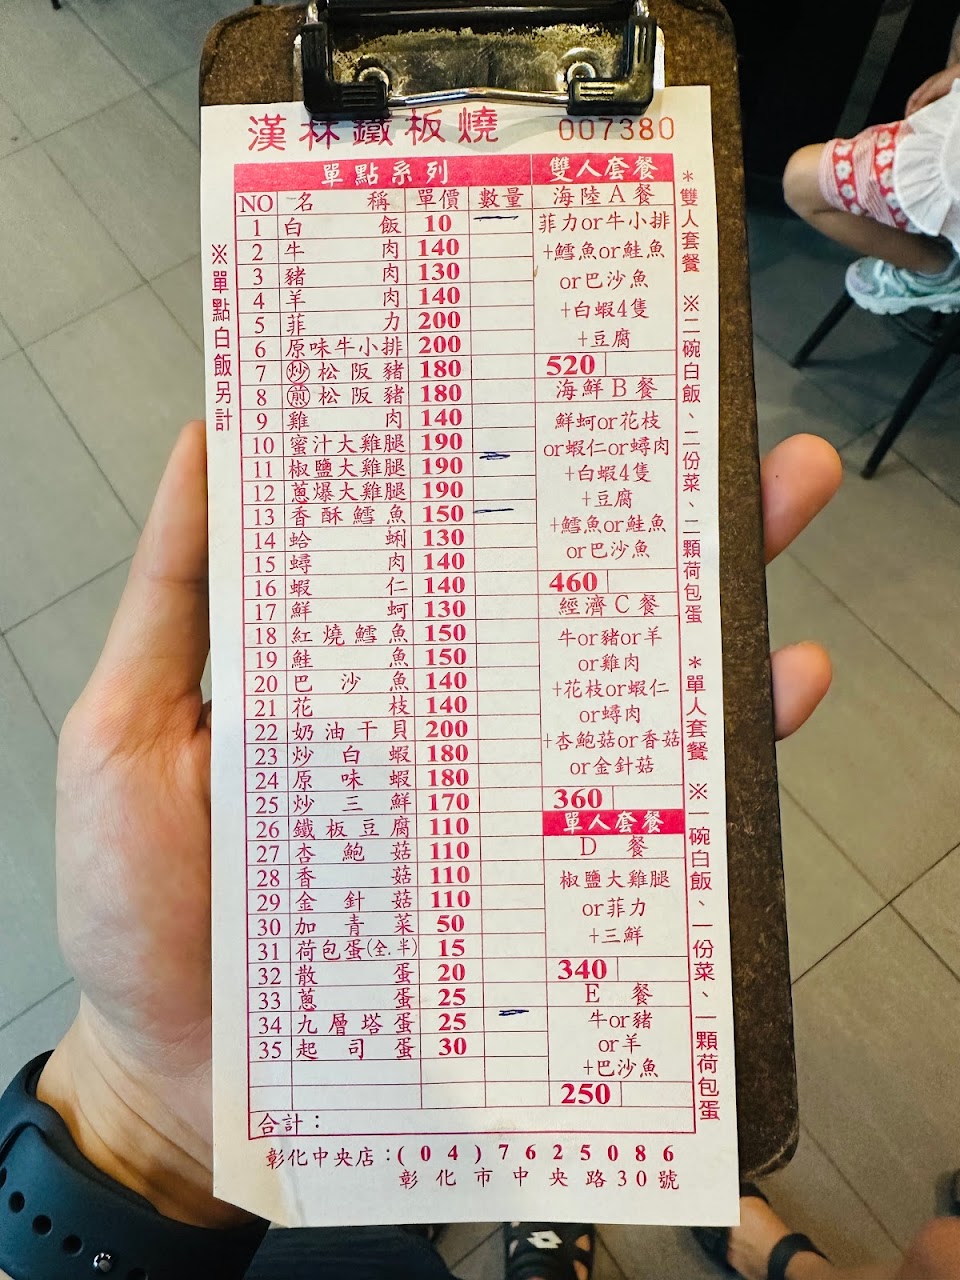 漢林鐵板燒 007380
單點系列
NO 名稱 單價 數量
1 白飯 10
2 牛肉 140
3 豬肉 130
4 羊肉 140
5 菲力 200
6 原味牛小排 200
7 炒松阪豬 180
8 煎松阪豬 180
9 雞肉 140
10 蜜汁大雞腿 190
11 椒鹽大雞腿 190
12 蔥爆大雞腿 190
13 香酥鱈魚 150
14 蛤蜊 130
15 蟳肉 140
16 蝦仁 140
17 鮮蚵 130
18 紅燒鱈魚 150
19 鮭魚 150
20 巴沙魚 140
21 花枝 140
22 奶油干貝 200
23 炒白蝦 180
24 原味蝦 180
25 炒三鮮 170
26 鐵板豆腐 110
27 杏鮑菇 110
28 香菇 110
29 金針菇 110
30 加青菜 50
31 荷包蛋(全.半) 15
32 散蛋 20
33 蔥蛋 25
34 九層塔蛋 25
35 起司蛋 30
合計：
雙人套餐
海陸A餐
菲力or牛小排
+鱈魚or鮭魚
or巴沙魚
+白蝦4隻
+豆腐
520
海鮮B餐
鮮蚵or花枝
or蝦仁or蟳肉
+白蝦4隻
+豆腐
+鱈魚or鮭魚
or巴沙魚
460
經濟C餐
牛or豬or羊
or雞肉
+花枝or蝦仁
or蟳肉
+杏鮑菇or香菇
or金針菇
360
單人套餐
D餐
椒鹽大雞腿
or菲力
+三鮮
340
E餐
牛or豬
or羊
+巴沙魚
250
※單點白飯另計
*雙人套餐 ※二碗白飯、二份菜、二顆荷包蛋
*單人套餐 ※一碗白飯、一份菜、一顆荷包蛋
彰化中央店：(04)7625086
彰化市中央路30號